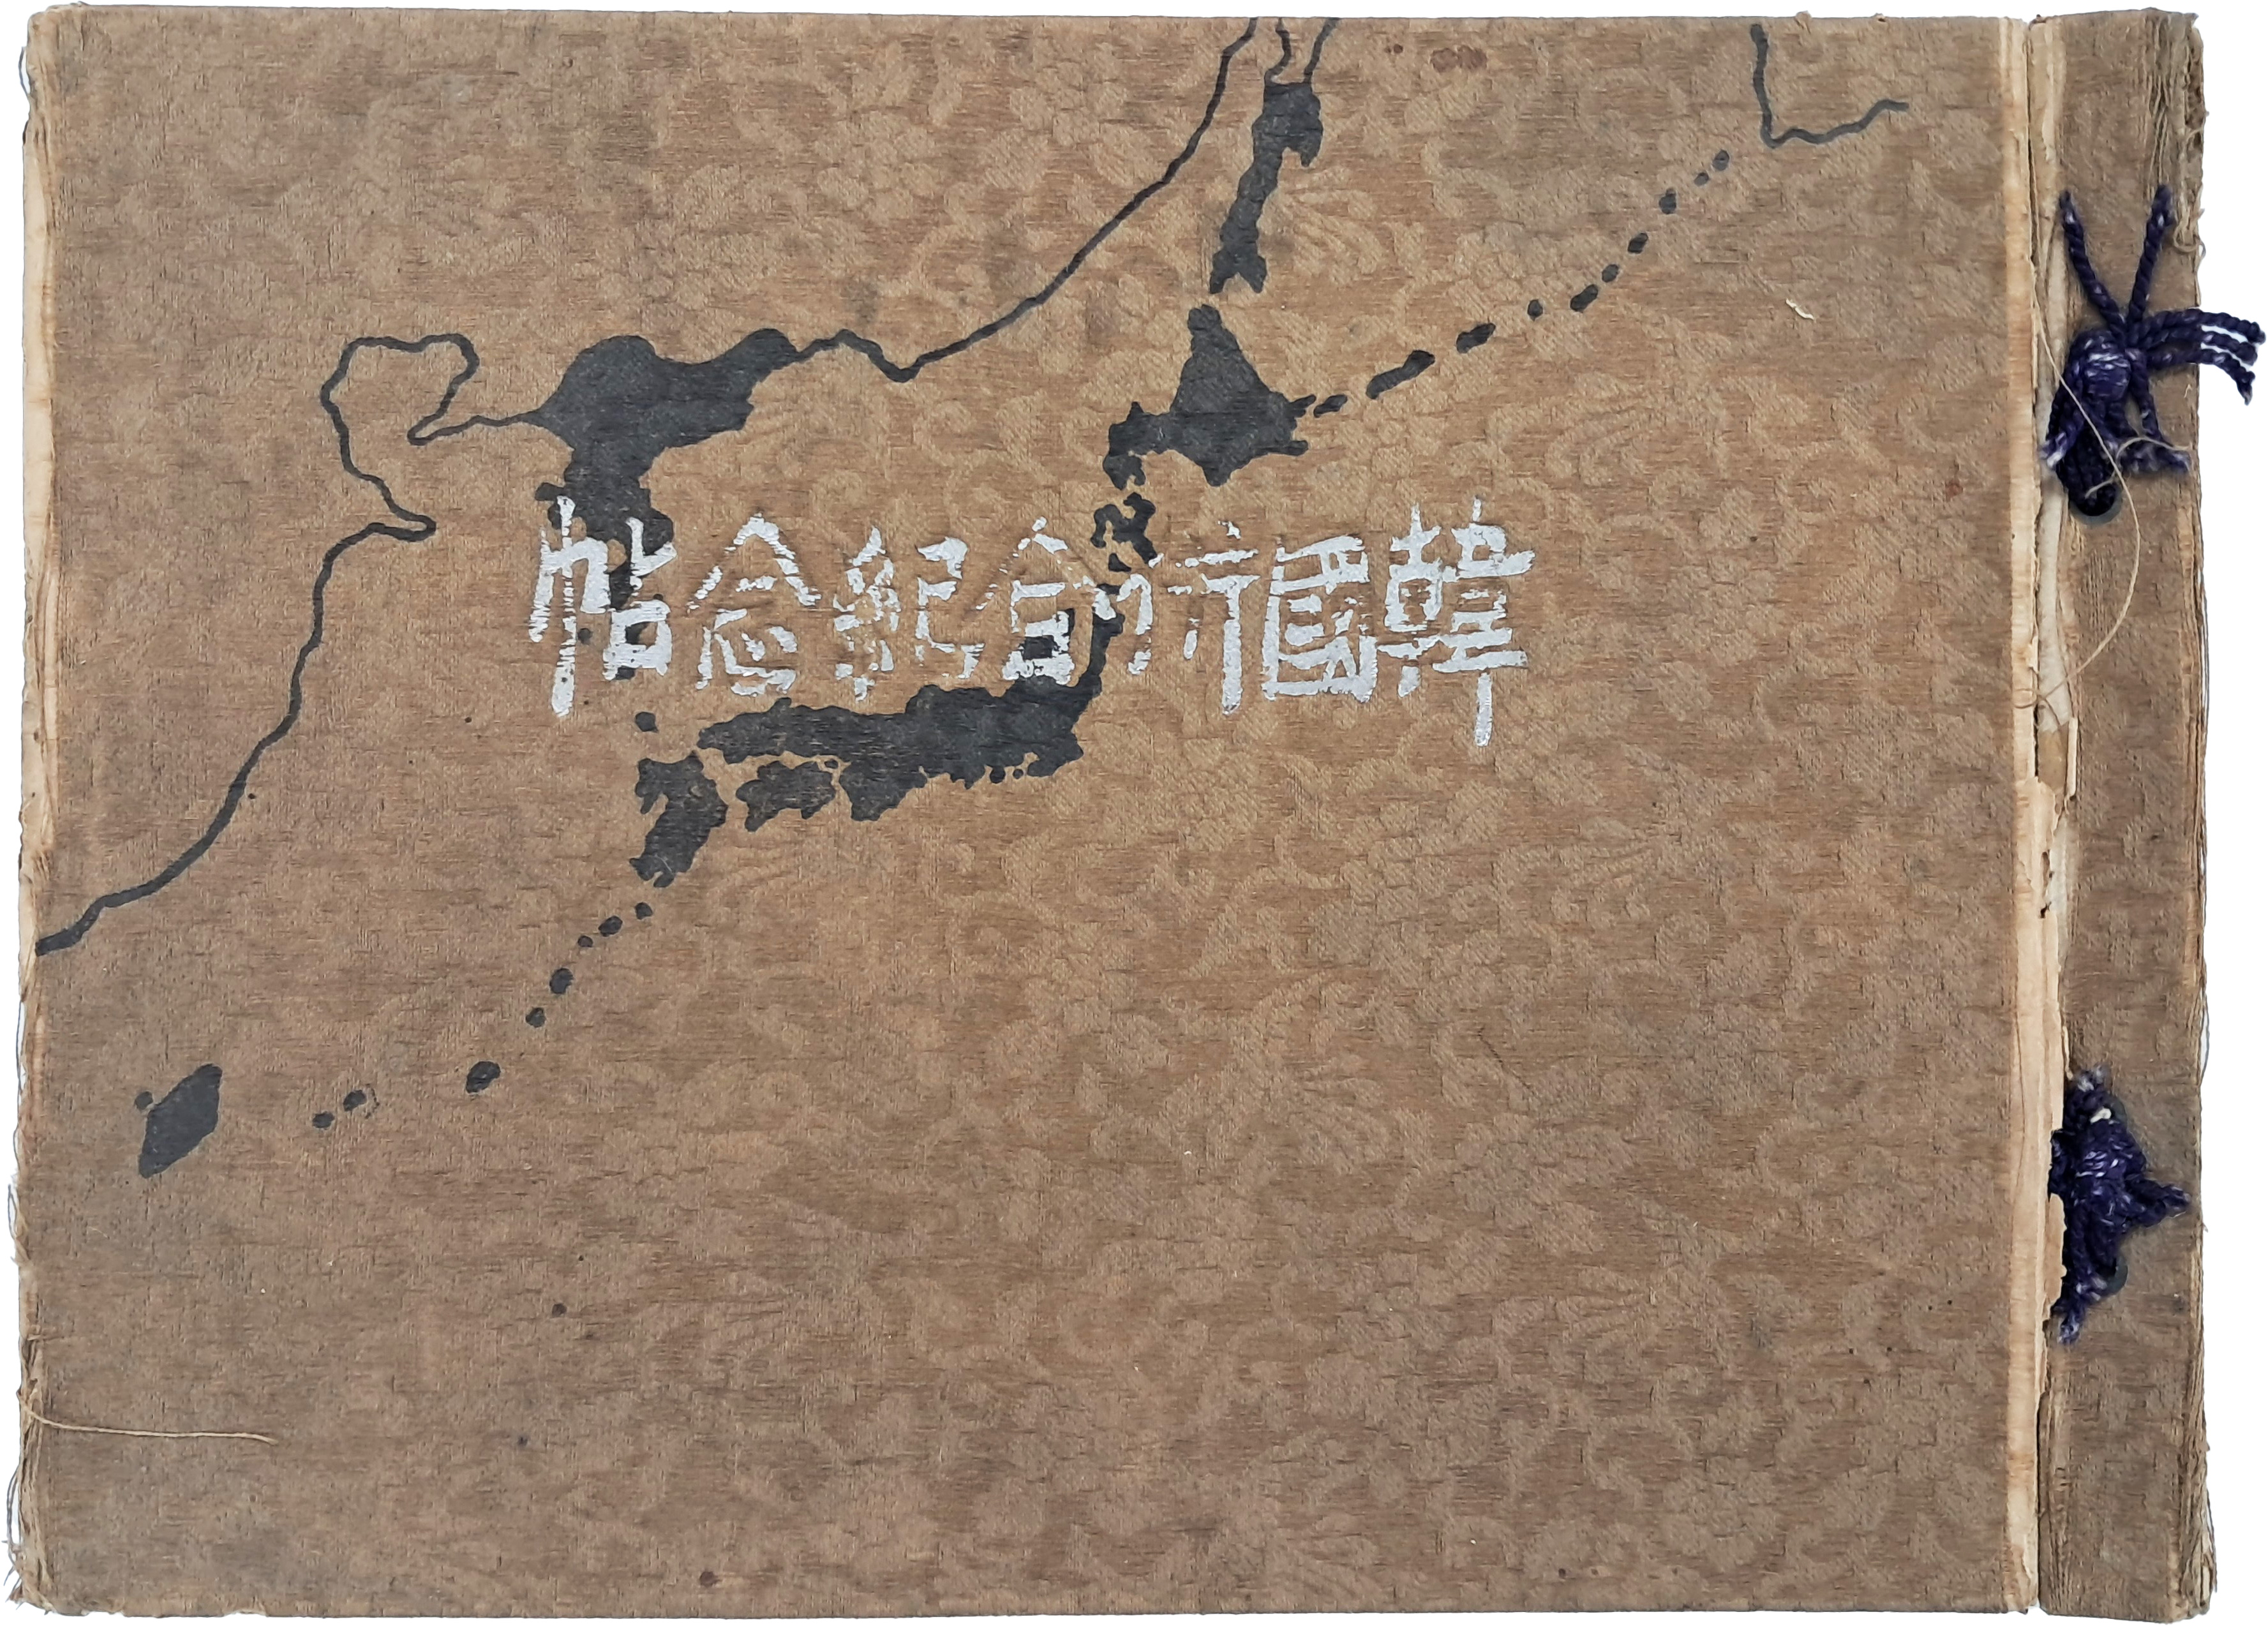 韓國併合紀念帖